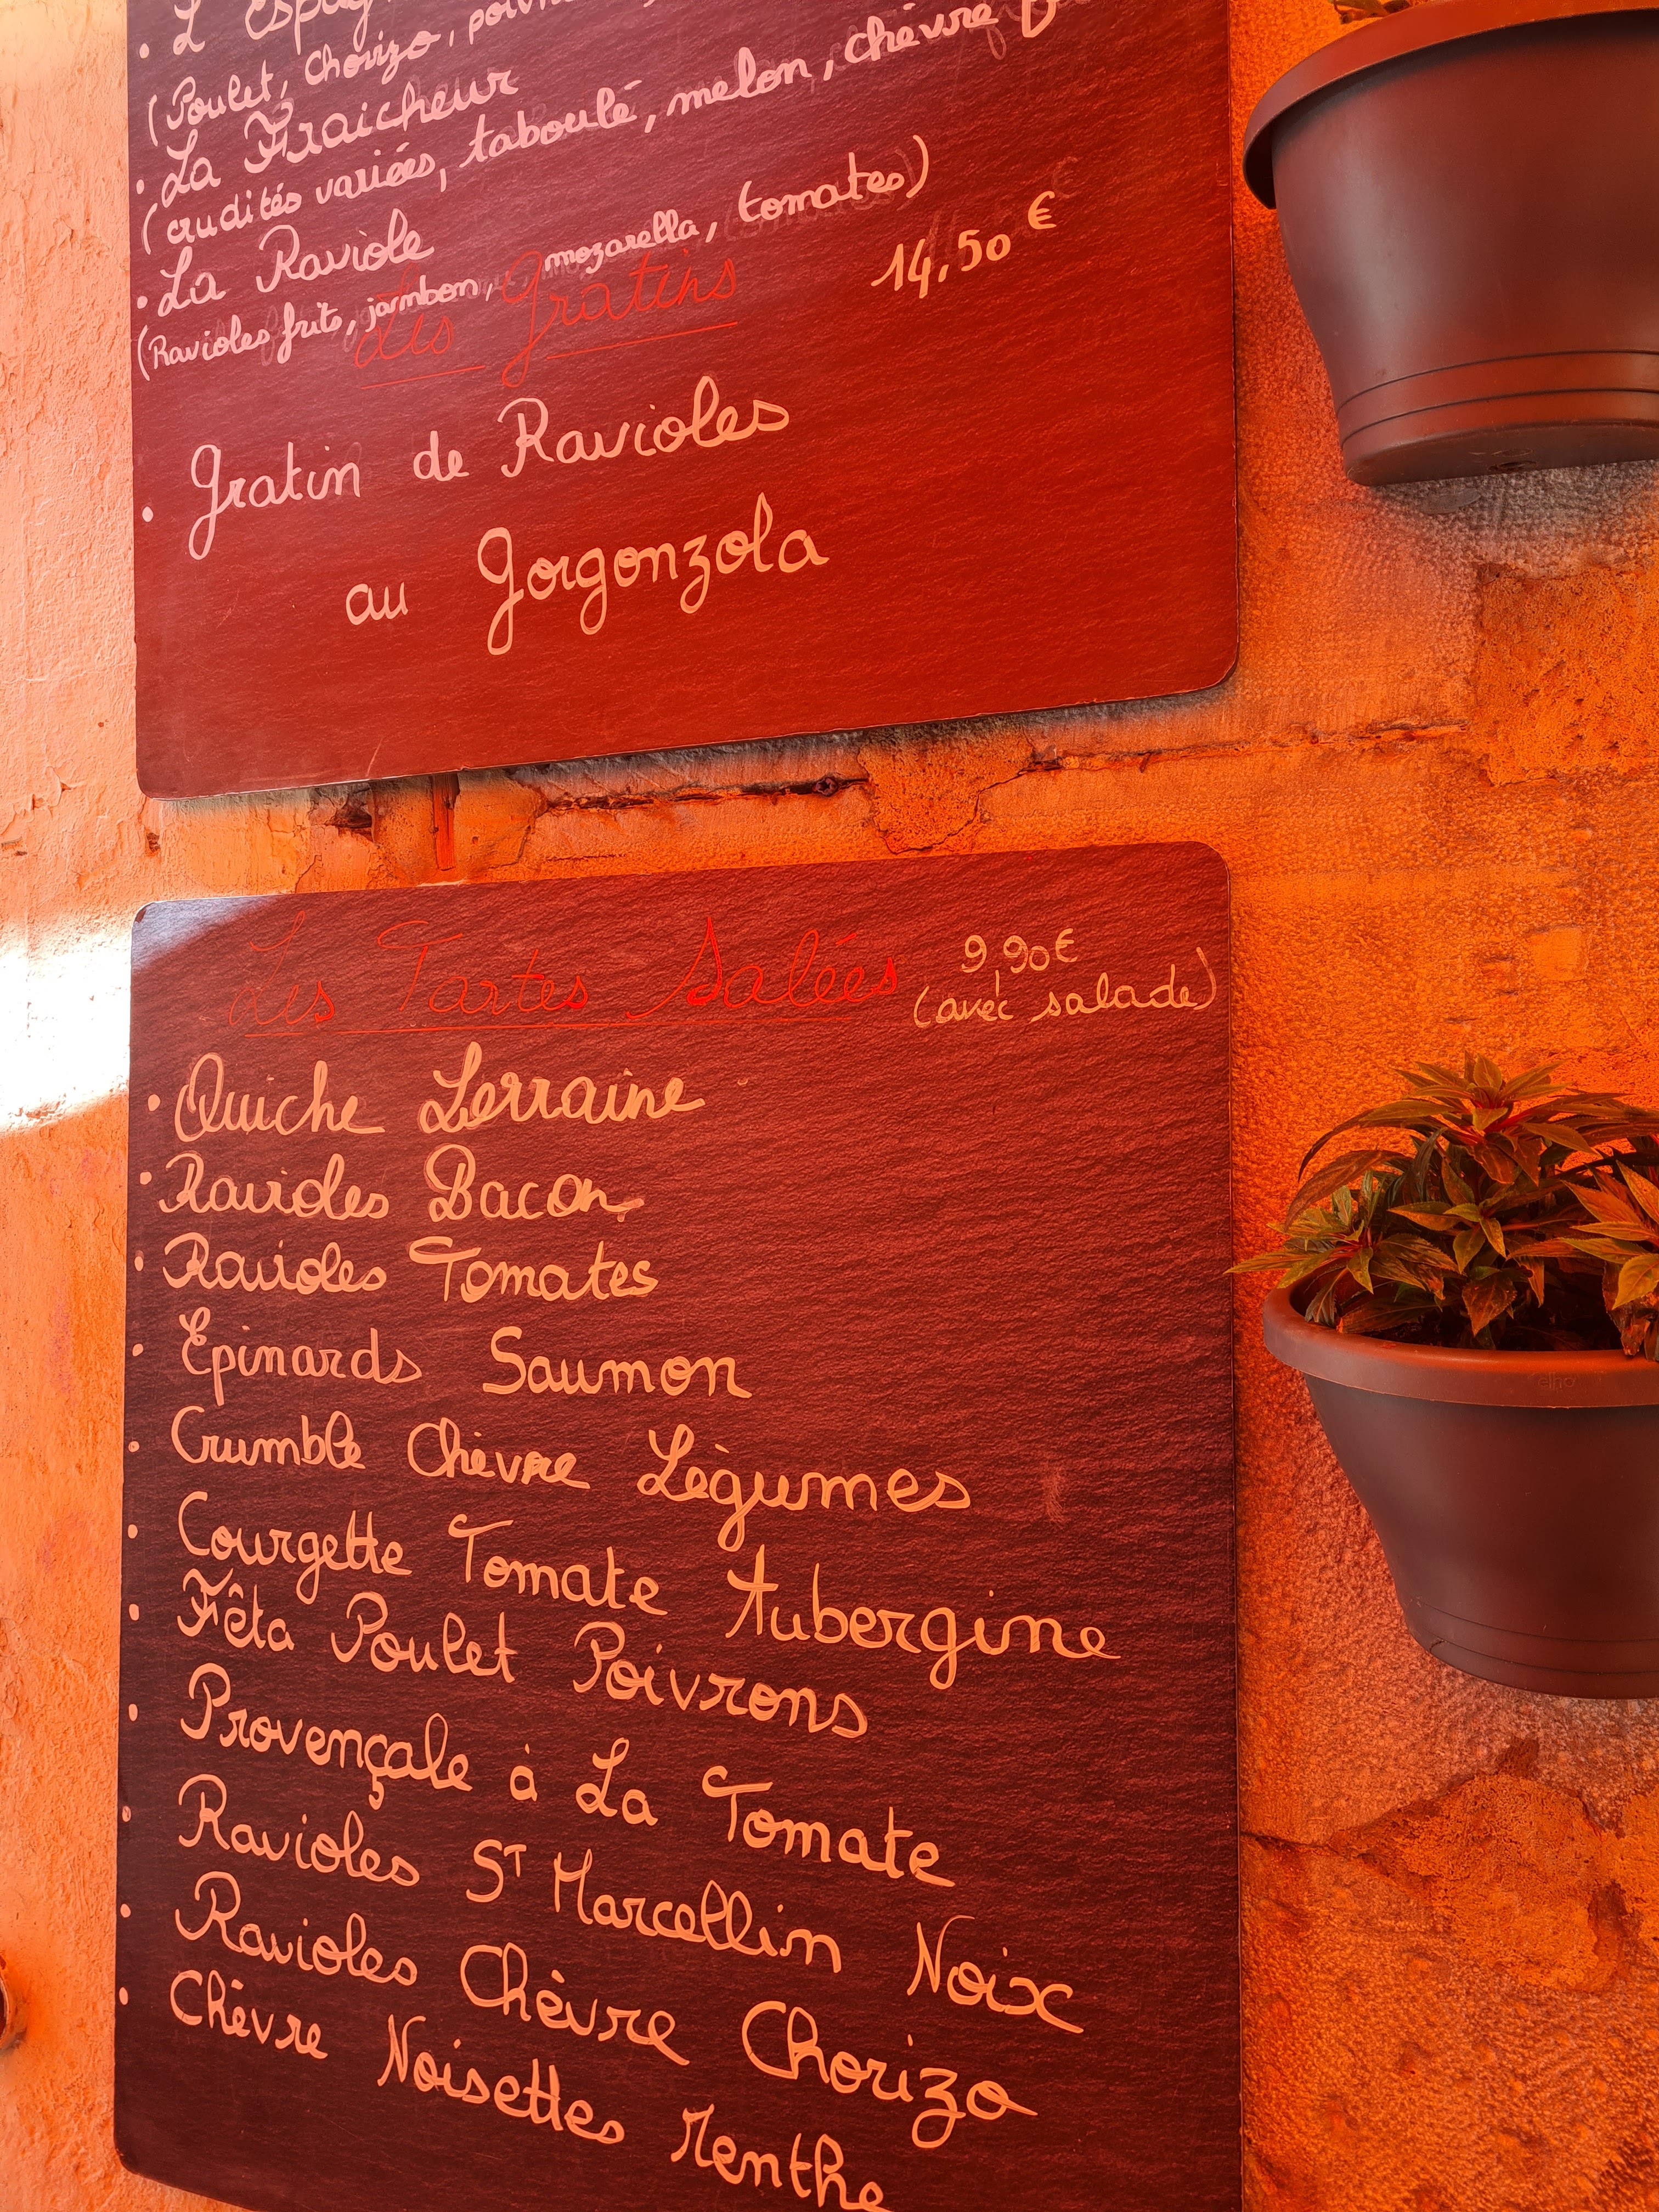 • L'Espag
(Poulet, chorizo,
• La Fraicheur
(crudités variées, taboulé, melon, chèvre
• La Raviole
(Ravioles frits, jambon, mozarella, tomates)
Les Gratins 14,50 €
• Gratin de Ravioles
au Gorgonzola
Les Tartes Salées 9,90€
(avec salade)
• Quiche Lorraine
• Ravioles Bacon
• Ravioles Tomates
• Epinards Saumon
• Crumble Chèvre Légumes
• Courgette Tomate Aubergine
• Fêta Poulet Poivrons
• Provençale à La Tomate
• Ravioles ST Marcellin Noix
• Ravioles Chèvre Chorizo
• Chèvre Noisettes Menthe
elho